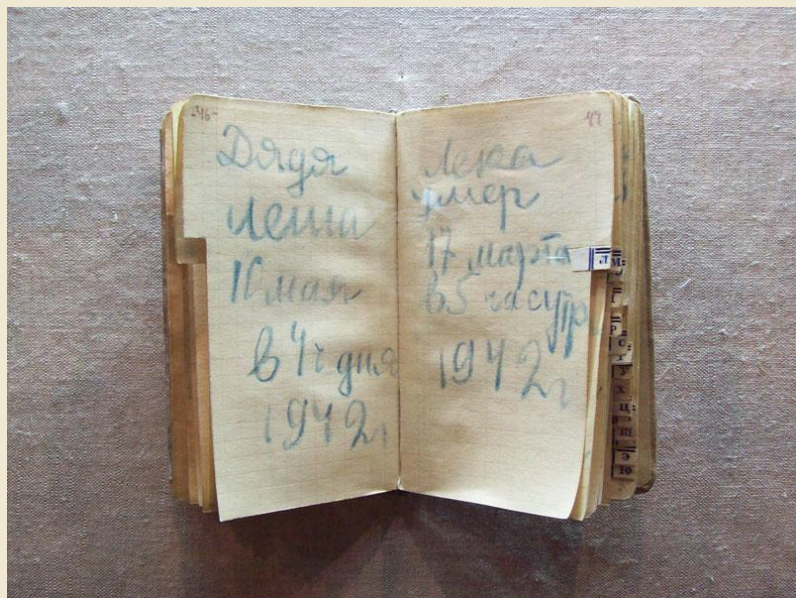 -46-
Дядя
Леша
10 мая
в 4ч дня
1942г
47
Лека
умер
17 марта
в 5 часутр
1942г
Л М
Р
У
Х
Ц
Ш
Э
Ю